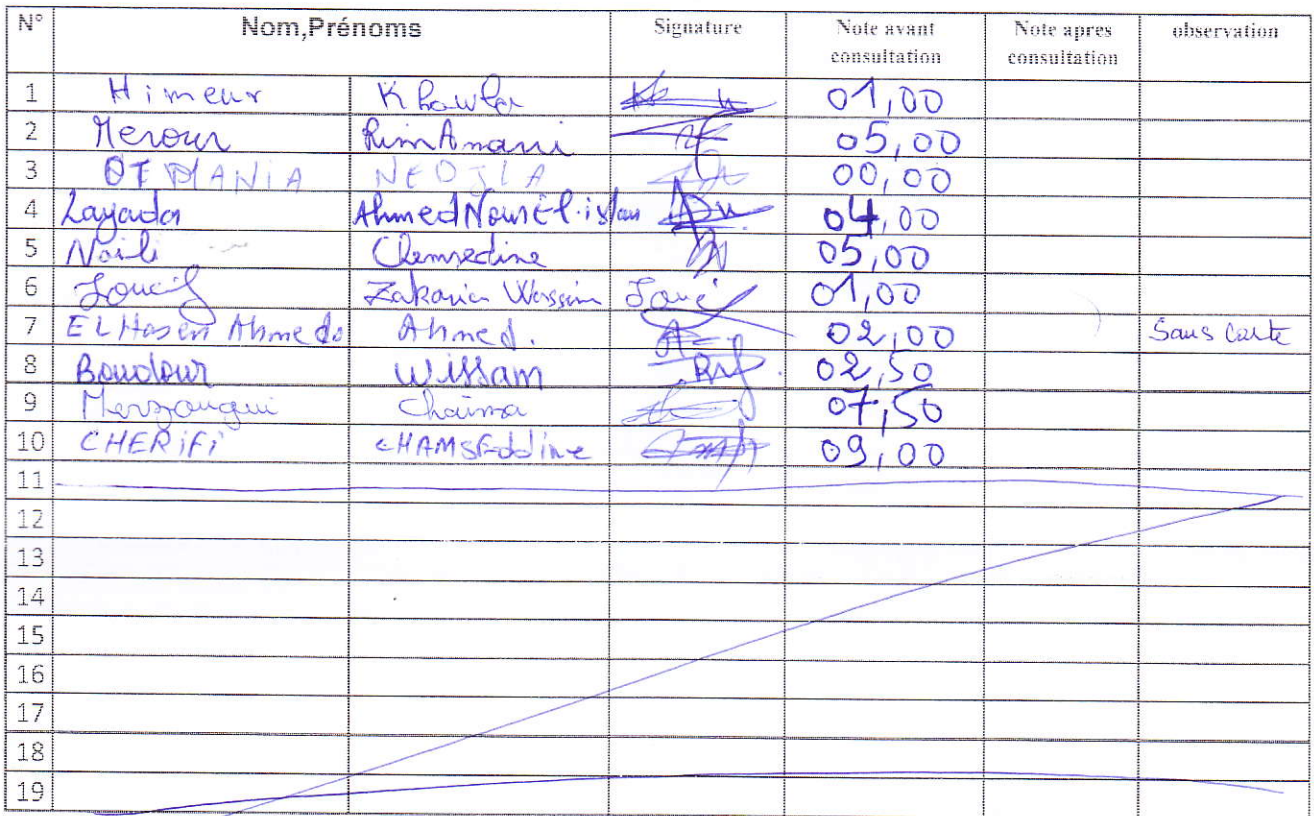 N° Nom,Prénoms Signature Note avant consultation Note apres consultation observation
1 Himeur Khawla 01,00
2 Merour Rim Amani 05,00
3 OTMANIA NEDJLA 00,00
4 Layada Ahmed Nour El-islam 04,00
5 Naili Chemsedine 05,00
6 Loucif Zakaria Wassim 01,00
7 EL Hasen Ahmedo Ahmed. 02,00 Sans carte
8 Boudour Wissam 02,50
9 Merzougui Chaima 07,50
10 CHERiFi CHAMSEddine 09,00
11
12
13
14
15
16
17
18
19